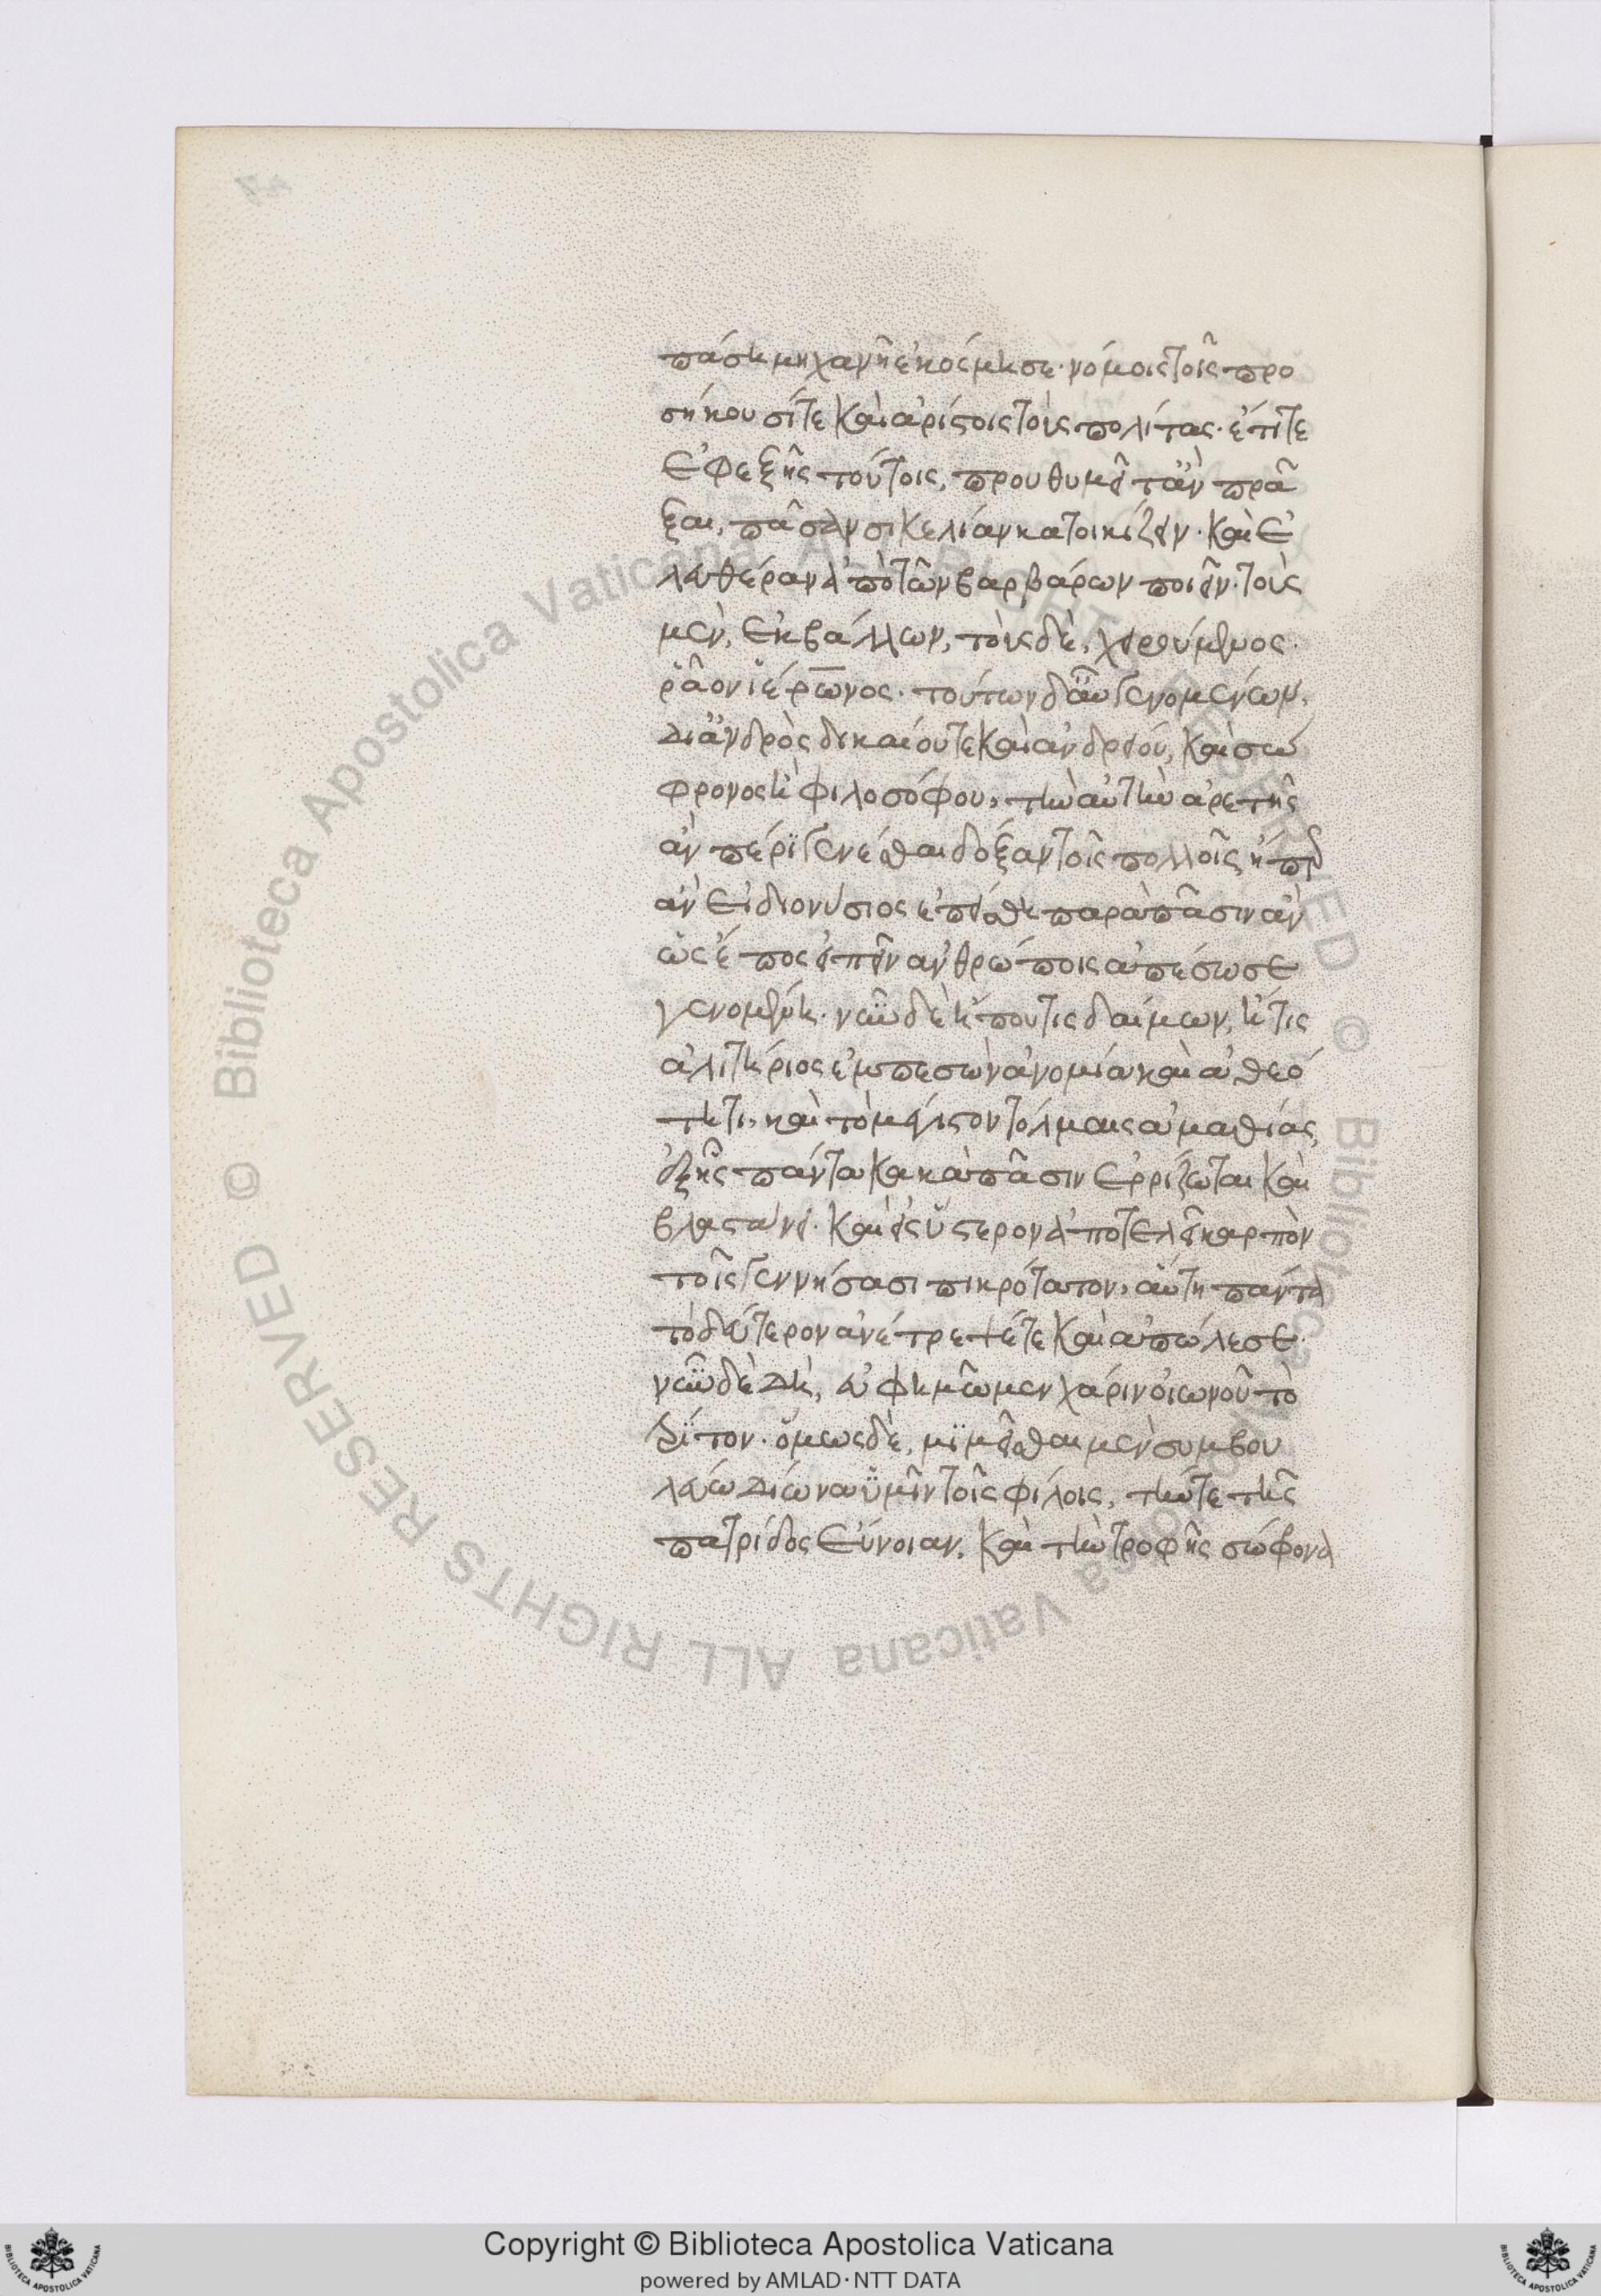 πάση μηχανῆ ἐκόσμησε· νόμοις τοῖς προ
σήκουσί τε καὶ ἀρίστοις τοὺς πολίτας· ἔτι τε
ἐφεξῆς τούτοις, προυθυμεῖτ᾽ ἂν πρᾶ
ξαι, πᾶσαν σικελίαν κατοικίζειν· καὶ ἐ
λευθέραν ἀπὸ τῶν βαρβάρων ποιεῖν· τοὺς
μὲν, ἐκβάλλων, τοὺς δὲ, χειρούμενος·
ῥᾶον ἱέρωνος· τούτων δ᾽ αὖ γενομένων,
δι᾽ ἀνδρὸς δικαίου τε καὶ ἀνδρείου, καὶ σώ
φρονος κ φιλοσόφου, τὴν αὐτὴν ἀρετῆς
ἂν πέρι γενέσθαι δόξαν τοῖς πολλοῖς, ἥπερ
ἂν εἰ διονύσιος ἐπείσθη παρὰ πᾶσιν ἂν
ὡς ἔπος εἰπεῖν ἀνθρώποις ἀπέσωσε
γενομένη· νῦν δὲ ἤ που τις δαίμων, ἤ τις
ἀλιτήριος ἐμπεσὼν ἀνομία καὶ ἀθεό
τητι, καὶ τὸ μέγιστον τόλμαις ἀμαθίας,
ἐξ ἧς πάντα κακὰ πᾶσιν ἐρρίζωται καὶ
βλαστάνει· καὶ εἰς ὕστερον ἀποτελεῖ καρπὸν
τοῖς γεννήσασι πικρότατον, αὕτη πάντα
τὸ δεύτερον ἀνέτρεψέ τε καὶ ἀπώλεσε·
νῦν δὲ δὴ, εὐφημῶμεν χάριν οἰωνοῦ τὸ
τρίτον· ὅμως δὲ, μιμεῖσθαι μὲν συμβου
λεύω δίωνα ὑμῖν τοῖς φίλοις, τήν τε τῆς
πατρίδος εὔνοιαν, καὶ τὴν τροφῆς σώφρονα